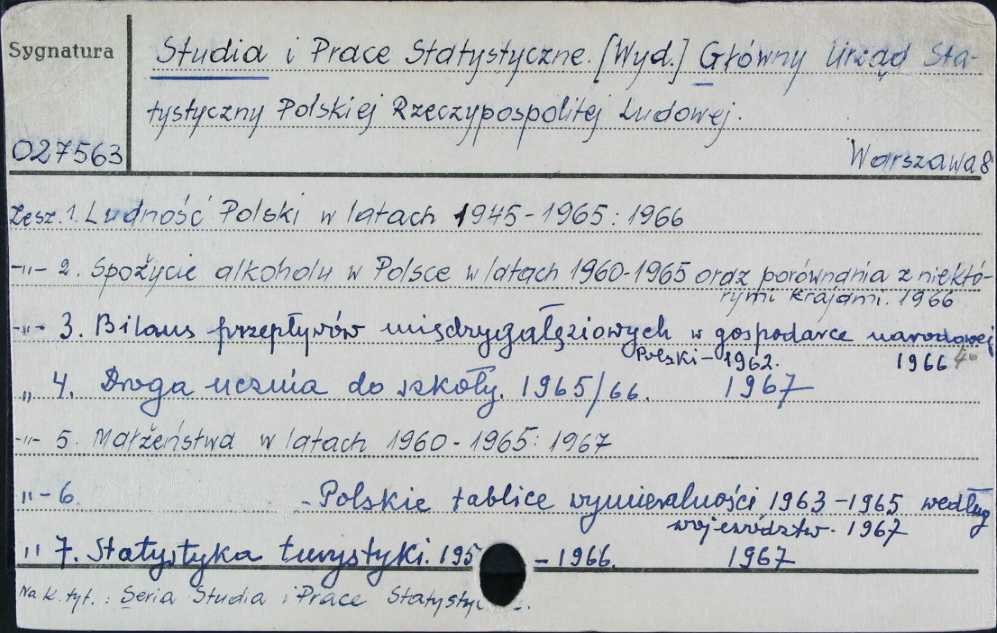 Sygnatura
Studia i Prace Statystyczne. [Wyd.] Główny Urząd Sta-
tystyczny Polskiej Rzeczypospolitej Ludowej.
027563
Warszawa 8
Zesz. 1. Ludność Polski w latach 1945-1965: 1966
-"- 2. Spożycie alkoholu w Polsce w latach 1960-1965 oraz porównania z niektó-
rymi krajami. 1966
-"- 3. Bilans przepływów międzygałęziowych w gospodarce narodowej
Polski - 1962. 1966
" 4. Droga ucznia do szkoły. 1965/66. 1967
-"- 5. Małżeństwa w latach 1960-1965: 1967
"- 6. - Polskie tablice wymieralności 1963-1965 według
województw. 1967
" 7. Statystyka turystyki. 195 - 1966. 1967
Na k. tyt.: Seria Studia i Prace